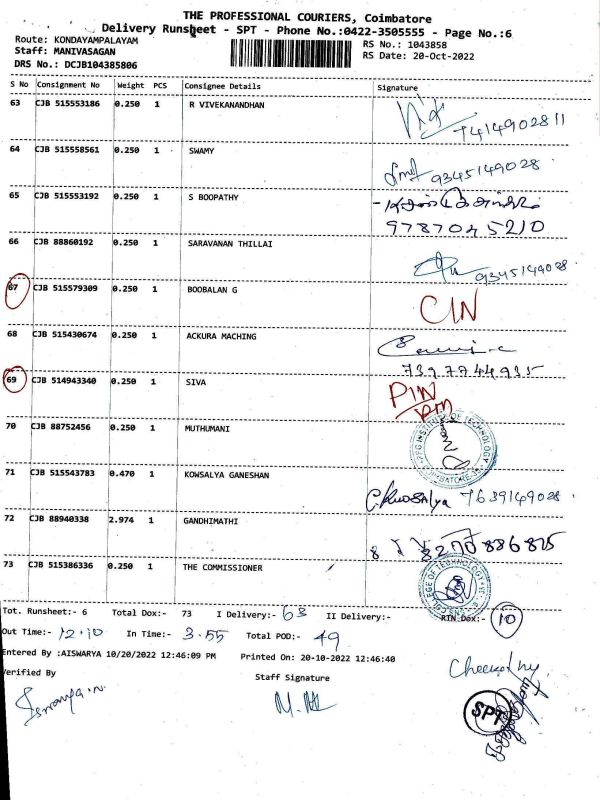 THE PROFESSIONAL COURIERS, Coimbatore
Delivery Runsheet - SPT - Phone No.:0422-3505555 - Page No.:6
Route: KONDAYAMPALAYAM
Staff: MANIVASAGAN
DRS No.: DCJB104385806
RS No.: 1043858
RS Date: 20-Oct-2022
S No Consignment No Weight PCS Consignee Details Signature
63 CJB 515553186 0.250 1 R VIVEKANANDHAN 7414902811
64 CJB 515558561 0.250 1 SWAMY 9345149028
65 CJB 515553192 0.250 1 S BOOPATHY
9787045210
66 CJB 88860192 0.250 1 SARAVANAN THILLAI 9345149028
67 CJB 515579309 0.250 1 BOOBALAN G CIN
68 CJB 515430674 0.250 1 ACKURA MACHING
7397744935
69 CJB 514943340 0.250 1 SIVA PIN
70 CJB 88752456 0.250 1 MUTHUMANI
71 CJB 515543783 0.470 1 KOWSALYA GANESHAN 7639149028
72 CJB 88940338 2.974 1 GANDHIMATHI
73 CJB 515386336 0.250 1 THE COMMISSIONER
COLLEGE OF TECHNOLOGY
Tot. Runsheet:- 6 Total Dox:- 73 I Delivery:- 63 II Delivery:- RTN Dox:- 10
Out Time:- 12.10 In Time:- 3.55 Total POD:- 49
Entered By :AISWARYA 10/20/2022 12:46:09 PM Printed On: 20-10-2022 12:46:40
Verified By Staff Signature
SPT